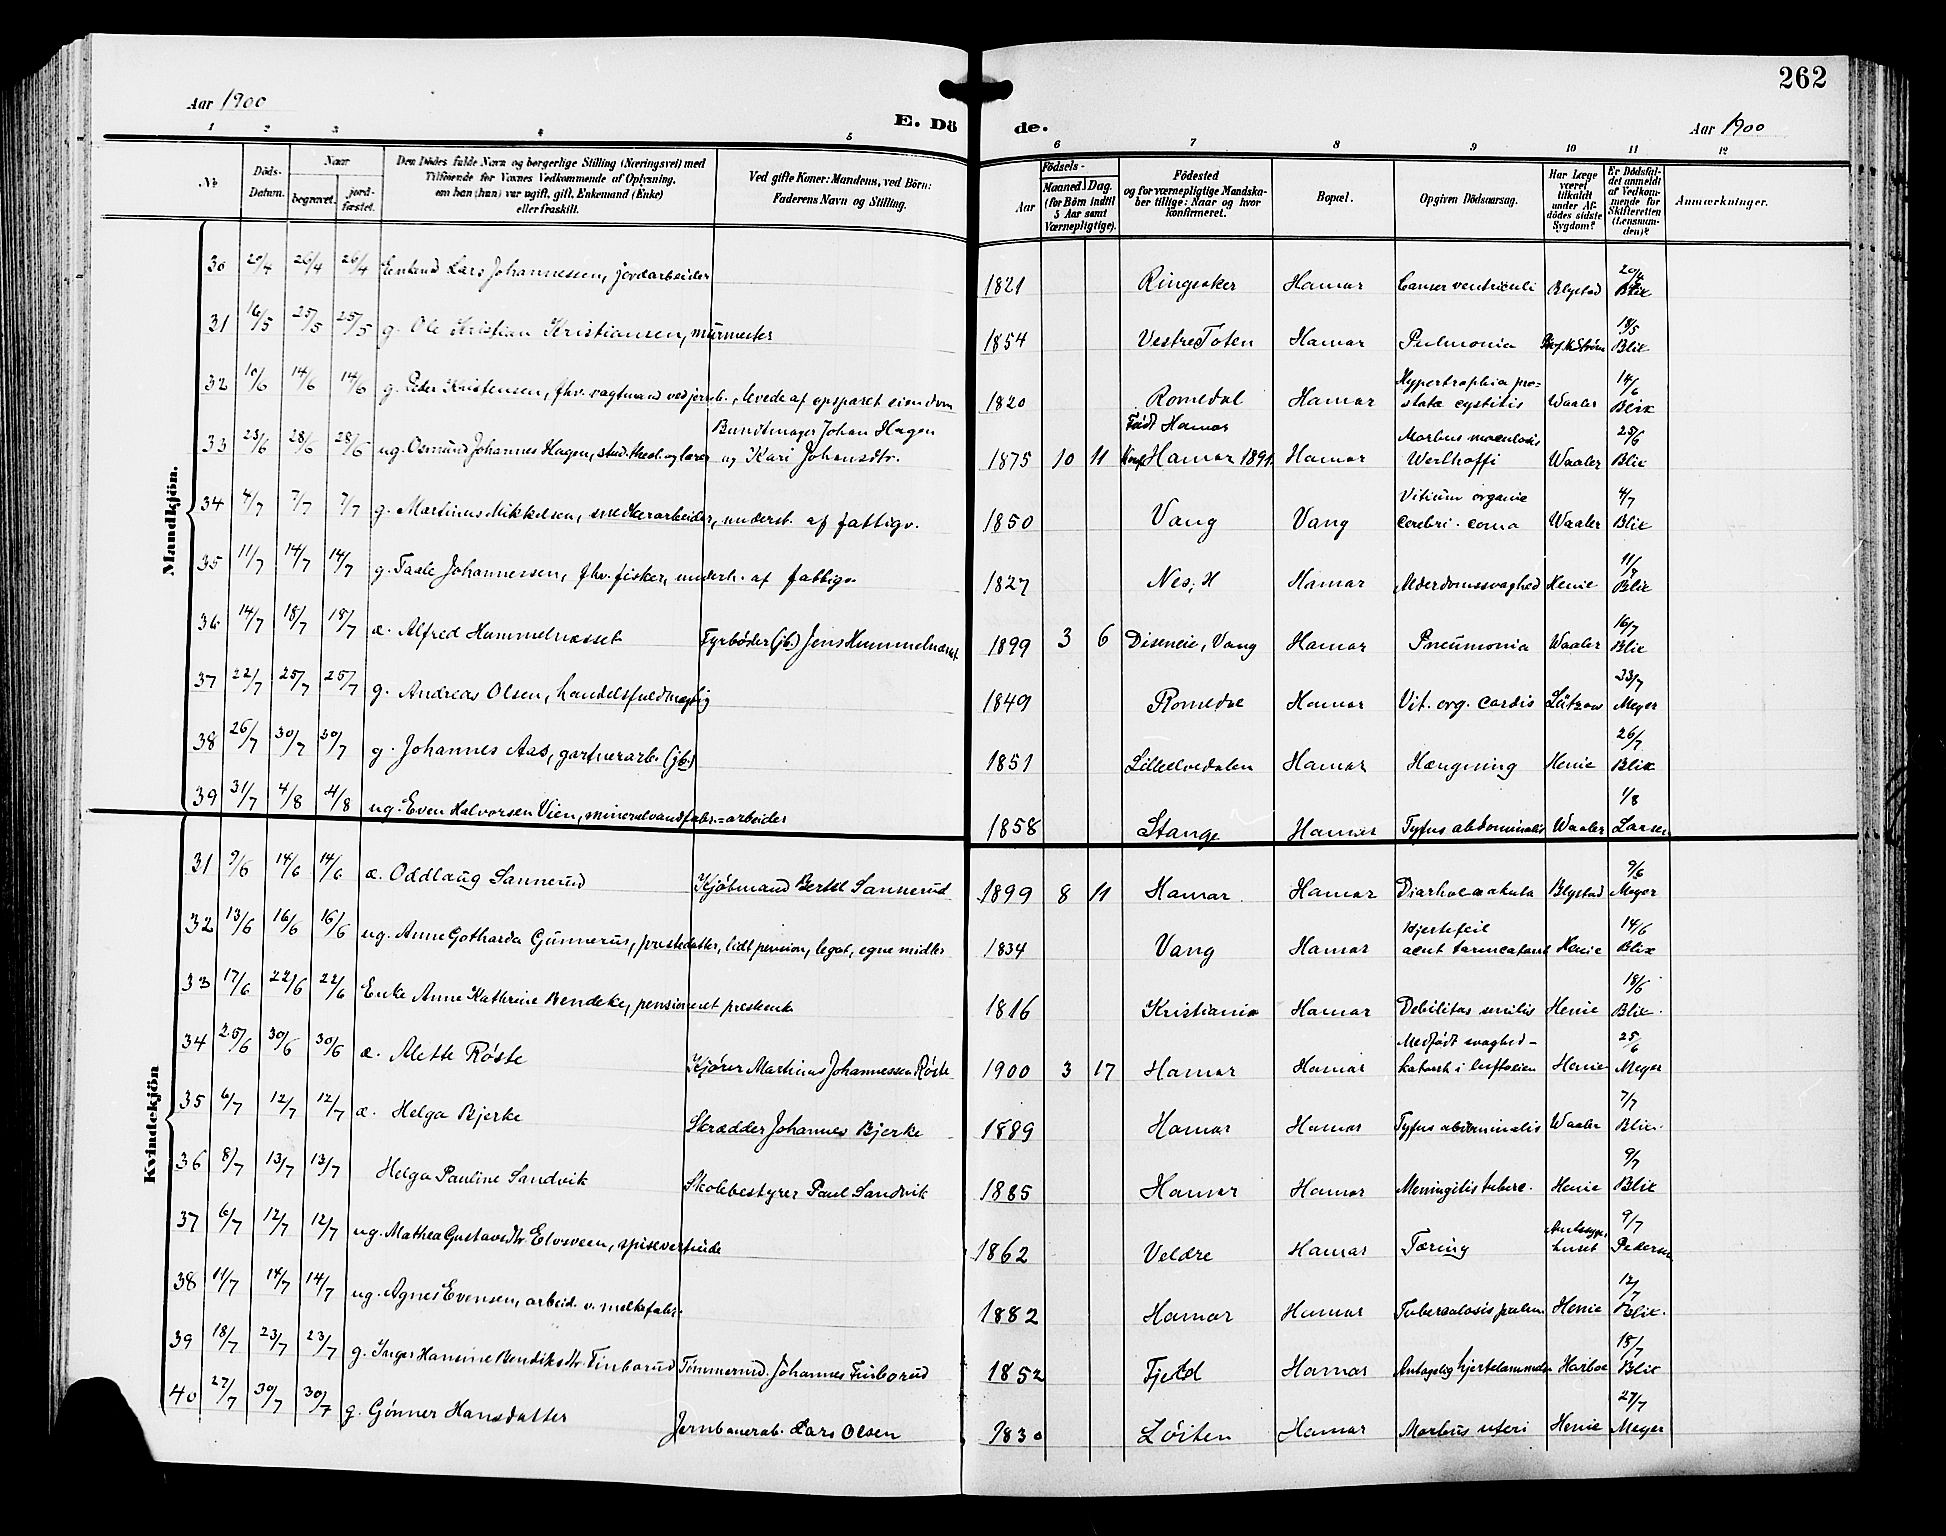 262
Aar 1900
E. Dö de.
Aar 1900
1 2 3 4 5 6 7 8 9 10 11 12
No
Döds-Datum.
Naar
begravet.
jord-fæstet.
Den Dødes fulde Navn og borgerlige Stilling (Næringsvei) med
Tilföiende for Voxnes Vedkommende af Oplysning,
om han (hun) var ugift, gift, Enkemand (Enke)
eller fraskilt.
Ved gifte Koner: Mandens, ved Börn:
Faderens Navn og Stilling.
Födsels-
Aar
Maaned. Dag.
(for Børn indtil
5 Aar samt
Værnepligtige).
Födested
og for værnepligtige Mandska-
ber tillige: Naar og hvor
konfirmeret.
Bopæl.
Opgiven Dödsaarsag.
Har Læge
været
tilkaldt
under Af-
dødes sidste
Sygdom?
Er Dödsfal-
det anmeldt
af Vedkom-
mende for
Skifteretten
(Lensman-
den)?
Anmærkninger.
Mandkjön.
30 20/4 26/4 26/4 Enkmd Lars Johannessen, jordarbeider 1821 Ringsaker Hamar Cancer ventriculi Blystad 20/4 Blix
31 16/5 25/5 25/5 g. Ole Kristian Kristiansen, murmester 1854 Vestre Toten Hamar Pulmonia 18/5 Blix
32 10/6 14/6 14/6 g. Peder Kristensen, fhv. vagtmand ved jernb., levede af opsparet eiendom 1820 Romedal Hamar Hypertrophia pro=
statæ cystitis Waaler 14/6 Blix
33 23/6 28/6 28/6 ug. Osmund Johannes Hagen, stud. theol. og lærer Bundtmager Johan Hagen
og Kari Johansdtr. 1875 10 11 Født Hamar
Konf. Hamar 1891 Hamar Morbus maculosis
Werlhoffi Waaler 25/6 Blix
34 4/7 7/7 7/7 g. Martinus Mikkelsen, snedkerarbeider, underst. af fattigv. 1850 Vang Vang Vitium organic
cerebri. coma Waaler 4/7 Blix
35 11/7 14/7 14/7 g. Taale Johannessen, fhv. fisker, underh. af fattigv. 1827 Nes, H Hamar Alderdomssvaghed Henie 11/7 Blix
36 14/7 18/7 18/7 æ. Alfred Hummelnæsset Fyrbøder (jb.) Jens Hummelnæsset 1899 3 6 Diseneie, Vang Hamar Pneumonia Waaler 16/7 Blix
37 22/7 25/7 25/7 g. Andreas Olsen, handelsfuldmægtig 1849 Romedal Hamar Vit. org. cordis Lützow 23/7 Meyer
38 26/7 30/7 30/7 g. Johannes Aas, gartnerarb. (jb.) 1851 Lilleelvedalen Hamar Hængning Henie 26/7 Blix
39 31/7 4/8 4/8 ug. Even Halvorsen Vien, mineralvandfabr.=arbeider 1858 Stange Hamar Tyfus abdominalis Waaler 1/8 Larsen
Kvindekjön
31 9/6 14/6 14/6 æ. Oddlaug Sannerud Kjøbmand Bertel Sannerud 1899 8 11 Hamar Hamar Diarhoea akuta Blystad 9/6 Meyer
32 13/6 16/6 16/6 ug. Anne Gotharda Gunnerus, prestedatter, lidt pension, legat, egne midler 1834 Vang Hamar Hjertefeil
acut tarmcatarrh Henie 14/6 Blix
33 17/6 22/6 22/6 Enke Anne Kathrine Bendeke, pensioneret presteenke 1816 Kristiania Hamar Debilitas senilis Henie 18/6 Blix.
34 25/6 30/6 30/6 æ. Alette Røste Kjører Martinus Johannessen Røste 1900 3 17 Hamar Hamar Medfødt svaghed-
katarrh i luftveien Henie 25/6 Meyer
35 6/7 12/7 12/7 æ. Helga Bjerke Skrædder Johannes Bjerke 1889 Hamar Hamar Tyfus abdominalis Waaler 7/7 Blix.
36 8/7 13/7 13/7 Helga Pauline Sandvik Skolebestyrer Paul Sandvik 1885 Hamar Hamar Meningitis tuberc. Henie 9/7 Blix
37 6/7 12/7 12/7 ug. Mathea Gustavsdtr Elvsveen, spisevertinde 1862 Veldre Hamar Tæring Amtssyge-
huset 9/7 Pedersen
38 11/7 14/7 14/7 ug. Agnes Evensen, arbeid. v. melkefabr. 1882 Hamar Hamar Tuberculosis pulm. Henie 12/7 Blix.
39 18/7 23/7 23/7 g. Inger Hansine Bendiksdtr Finborud Tømmermd. Johannes Finborud 1852 Fjeld Hamar Antagelig hjertelammelse Harboe 18/7 Blix
40 27/7 30/7 30/7 g. Gønner Hansdatter Jernbanearb. Lars Olsen 1830 Løiten Hamar Morbus uteri Henie 27/7 Meyer